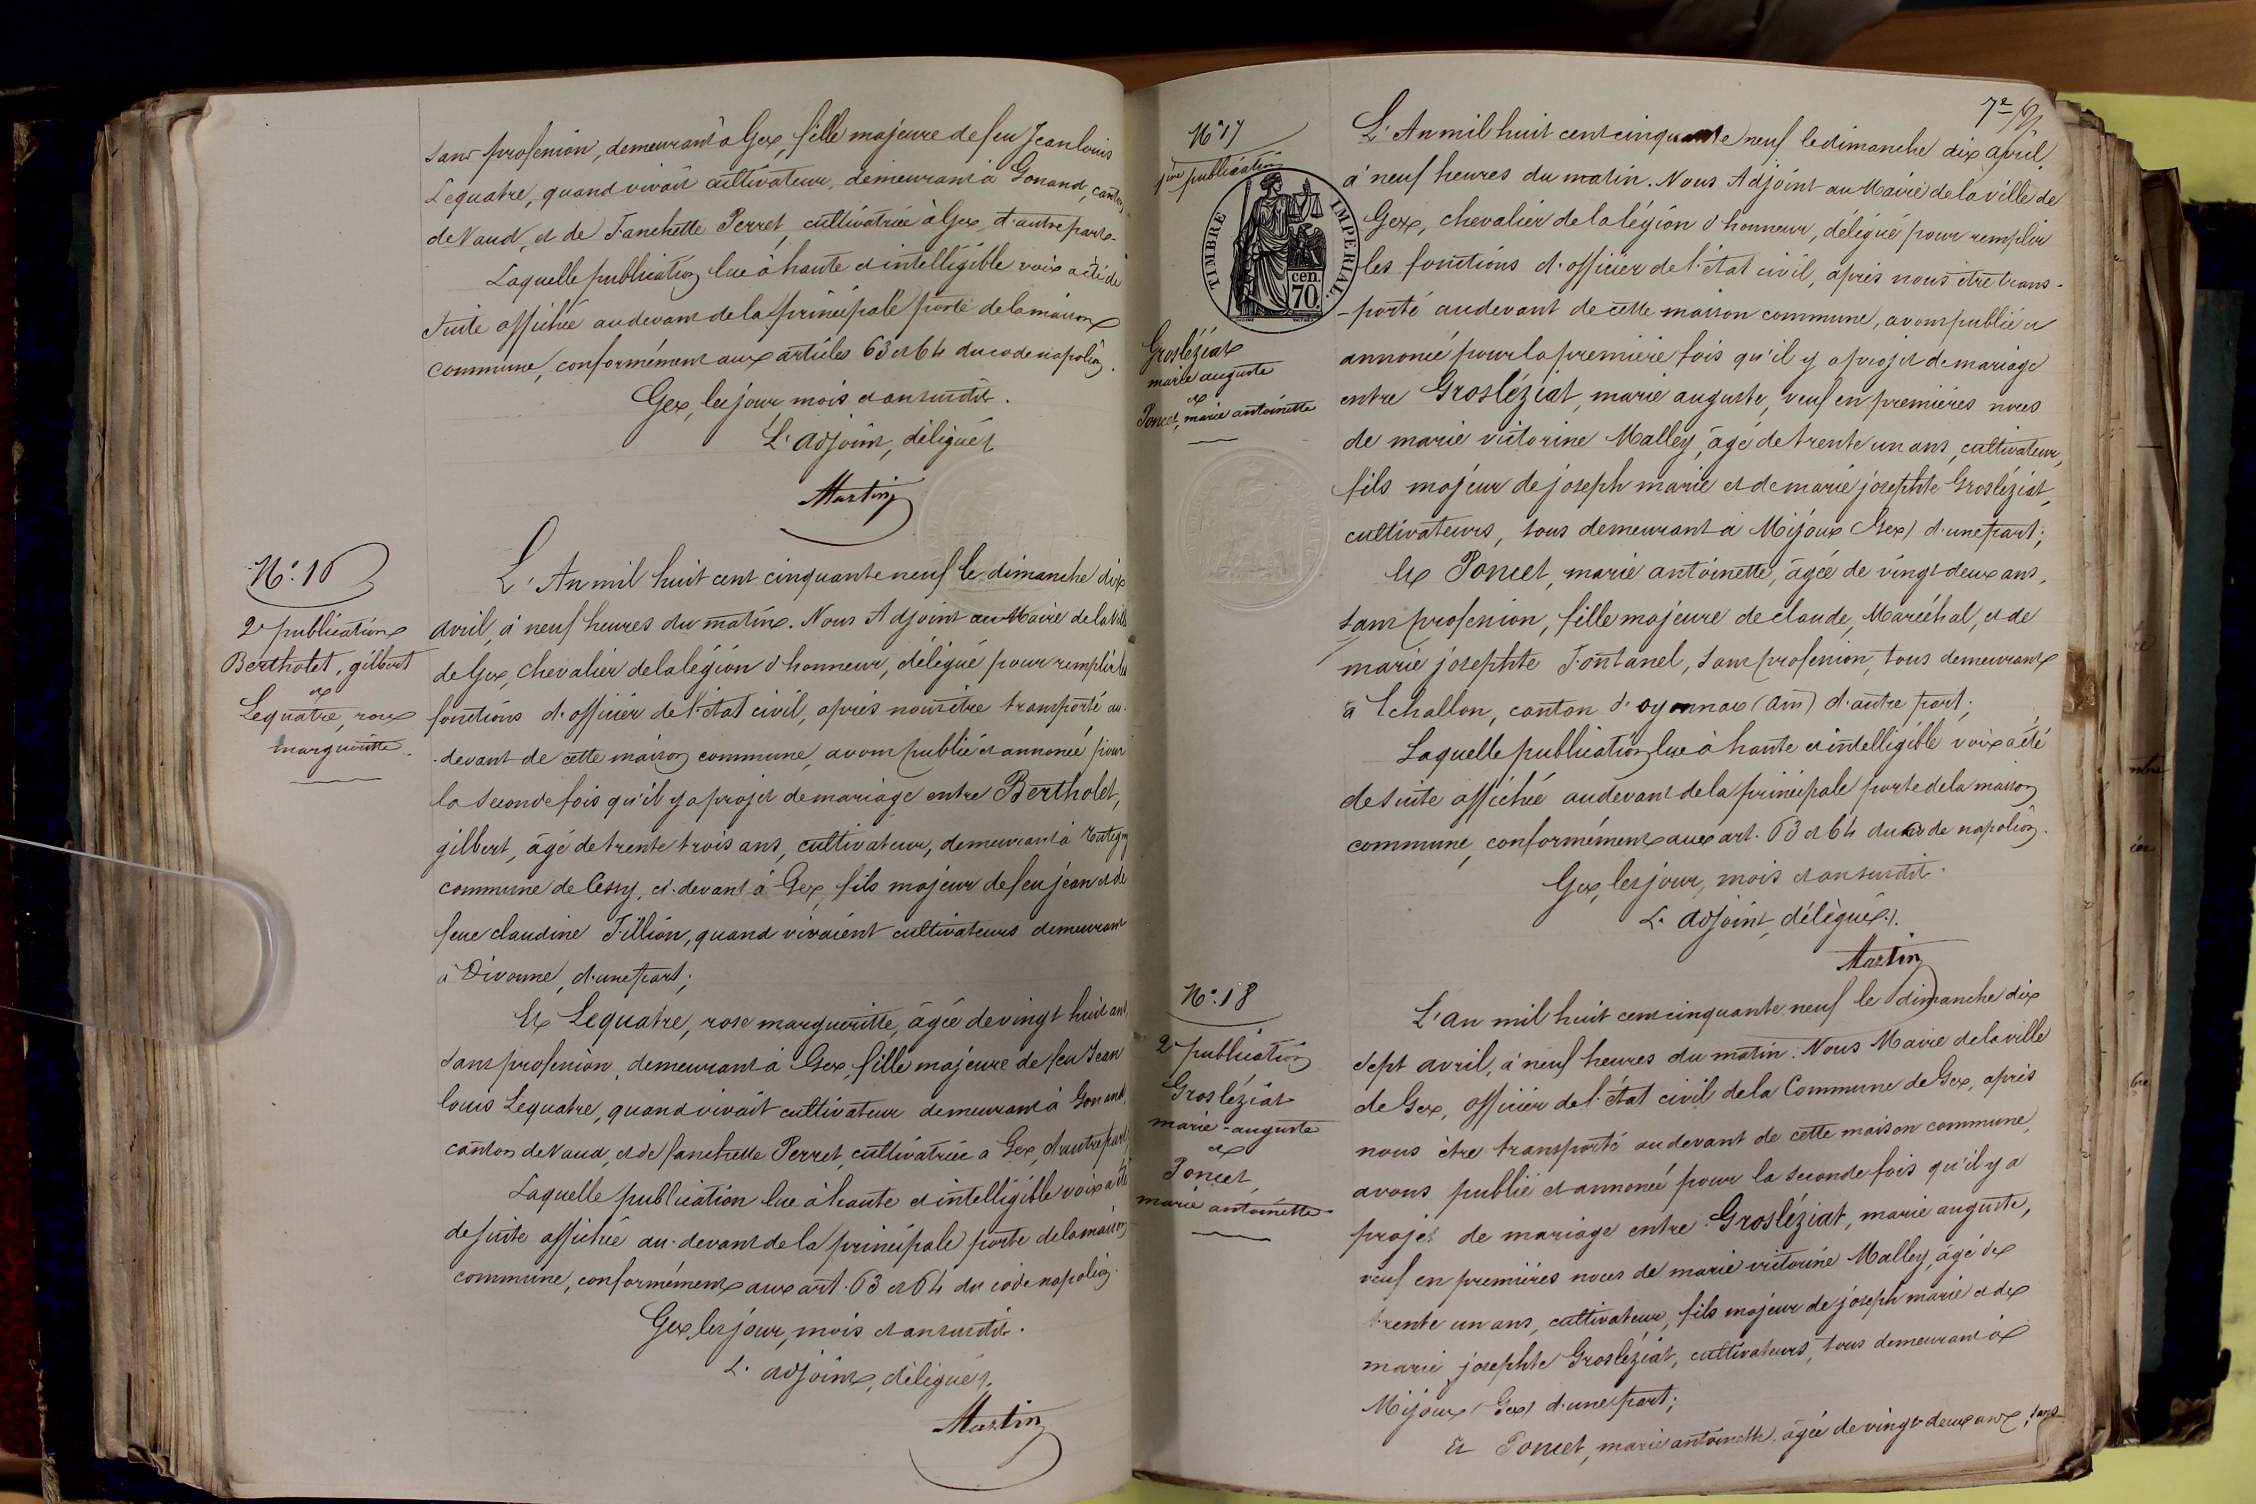 sans profession, demeurant à Gex, fille majeure de feu Jean louis
Lequatre, quand vivait cultivateur, demeurant à Gonand, canton
de Vaud, et de Fanchette Perret, cultivatrice à Gex, d'autre part.-
Laquelle publication lue à haute et intelligible voix a été de
suite affichée au devant de la principale porte de la maison
commune, conformément aux articles 63 et 64 du code napoléon.
Gex, les jour, mois et an susdit.
L'adjoint, délégué,
Martin
N°. 16
2e publication
Bertholet, gilbert
et
Lequatre, rose
margueritte.
L'An mil huit cent cinquante neuf le dimanche dix
avril, à neuf heures du matin. Nous Adjoint au Maire de la ville
de Gex, chevalier de la légion d'honneur, délégué pour remplir les
fonctions d'officier de l'état civil, après nous être transporté au-
devant de cette maison commune, avons publié et annoncé pour
la seconde fois qu'il y a projet de mariage entre Bertholet,
gilbert, âgé de trente trois ans, cultivateur, demeurant à
commune de Cessy, ci-devant à Gex, fils majeur de feu jean et de
feue claudine Fillion, quand vivaient cultivateurs demeurant
à Divonne, d'une part;
Et Lequatre, rose margueritte, âgée de vingt huit ans,
sans profession, demeurant à Gex, fille majeure de feu Jean
louis Lequatre, quand vivait cultivateur demeurant à Gonand,
canton de Vaud, et de fanchette Perret, cultivatrice à Gex, d'autre part;
Laquelle publication lue à haute et intelligible voix a été
de suite affichée au-devant de la principale porte de la maison
commune, conformément aux art. 63 et 64 du code napoléon.
Gex, les jour, mois et an susdit.
L'adjoint, délégué,
Martin
7e
N° 17
1ère publication
TIMBRE IMPERIAL.
cen.
70.
Grosléziat
marie auguste
et
Poncet, marie antoinette
L'An mil huit cent cinquante neuf le dimanche dix avril,
à neuf heures du matin. Nous Adjoint au Maire de la ville de
Gex, chevalier de la légion d'honneur, délégué pour remplir
les fonctions d'officier de l'état civil, après nous être trans-
-porté au devant de cette maison commune, avons publié et
annoncé pour la première fois qu'il y a projet de mariage
entre Grosléziat, marie auguste, veuf en premières noces
de marie victorine Malley, âgé de trente un ans, cultivateur,
fils majeur de joseph marie et de marie josephte Grosléziat,
cultivateurs, tous demeurant à Mijoux (Gex) d'une part;
Et Poncet, marie antoinette, âgée de vingt deux ans,
sans profession, fille majeure de claude, Maréchal, et de
marie josephte Fontanel, sans profession, tous demeurant
à Echallon, canton d'oyonnax (ain) d'autre part;
Laquelle publication lue à haute et intelligible voix a été
de suite affichée au devant de la principale porte de la maison
commune, conformément aux art. 63 et 64 du code napoléon.
Gex, les jour, mois et an susdit.
L'adjoint, délégué.
Martin
N°. 18
2e publication
Grosléziat
marie-auguste
et
Poncet
marie antoinette
L'an mil huit cent cinquante neuf le dimanche dix
sept avril, à neuf heures du matin. Nous Maire de la ville
de Gex, officier de l'état civil de la Commune de Gex, après
nous être transporté au devant de cette maison commune,
avons publié et annoncé pour la seconde fois qu'il y a
projet de mariage entre Grosléziat, marie auguste,
veuf en premières noces de marie victorine Malley, âgé de
trente un ans, cultivateur, fils majeur de joseph marie et de
marie josephte Grosléziat, cultivateurs, tous demeurant à
Mijoux (Gex) d'une part;
Et Poncet, marie antoinette, âgée de vingt deux ans, sans